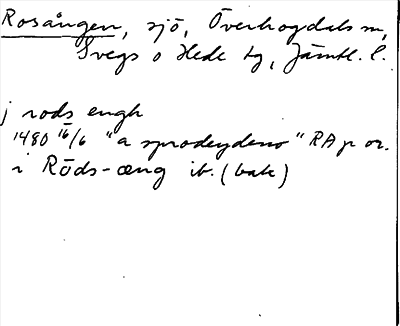 Rosången, sjö, Överhogdals sn,
Svegs o Hede tg, Jämtl. l.
j rods engh
1480 16/6 "a sprodeydeno" RA p or.
i Röds-æng ib. (bak)